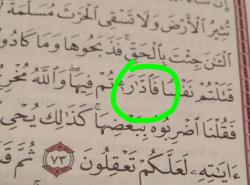 تُثِيرُ ٱلْأَرْضَ وَلَا تَسْقِى ٱلْحَرْثَ مُسَلَّمَةٌ
ٱلْـَٰٔنَ جِئْتَ بِٱلْحَقِّ ۚ فَذَبَحُوهَا وَمَا كَادُوا۟
قَتَلْتُمْ نَفْسًا فَٱدَّٰرَْٰٔتُمْ فِيهَا ۖ وَٱللَّهُ مُخْرِجٌ
فَقُلْنَا ٱضْرِبُوهُ بِبَعْضِهَا ۚ كَذَٰلِكَ يُحْىِ
ءَايَٰتِهِۦ لَعَلَّكُمْ تَعْقِلُونَ ٧٣ ثُمَّ